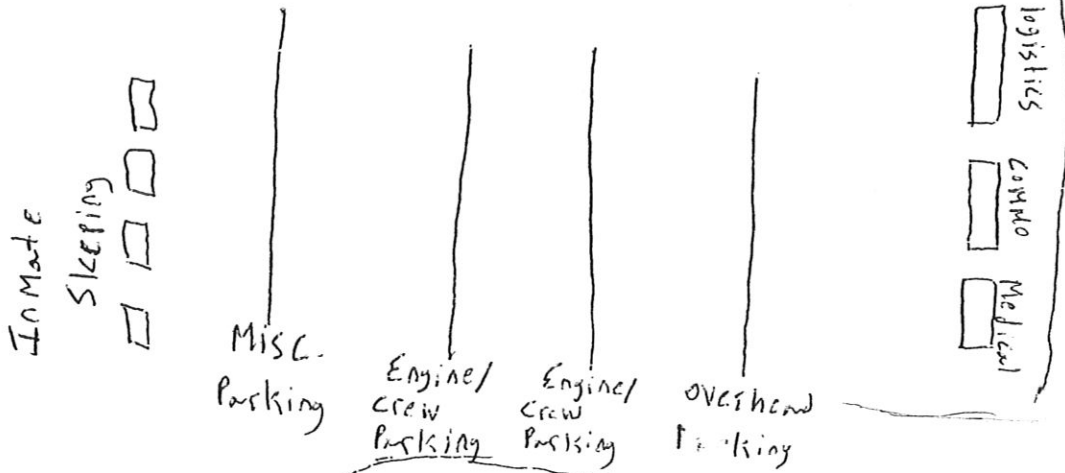 Inmate
Sleeping
Misc.
Parking
Engine/
crew
Parking
Engine/
crew
Parking
overhead
Parking
logistics
COMMO
Medical